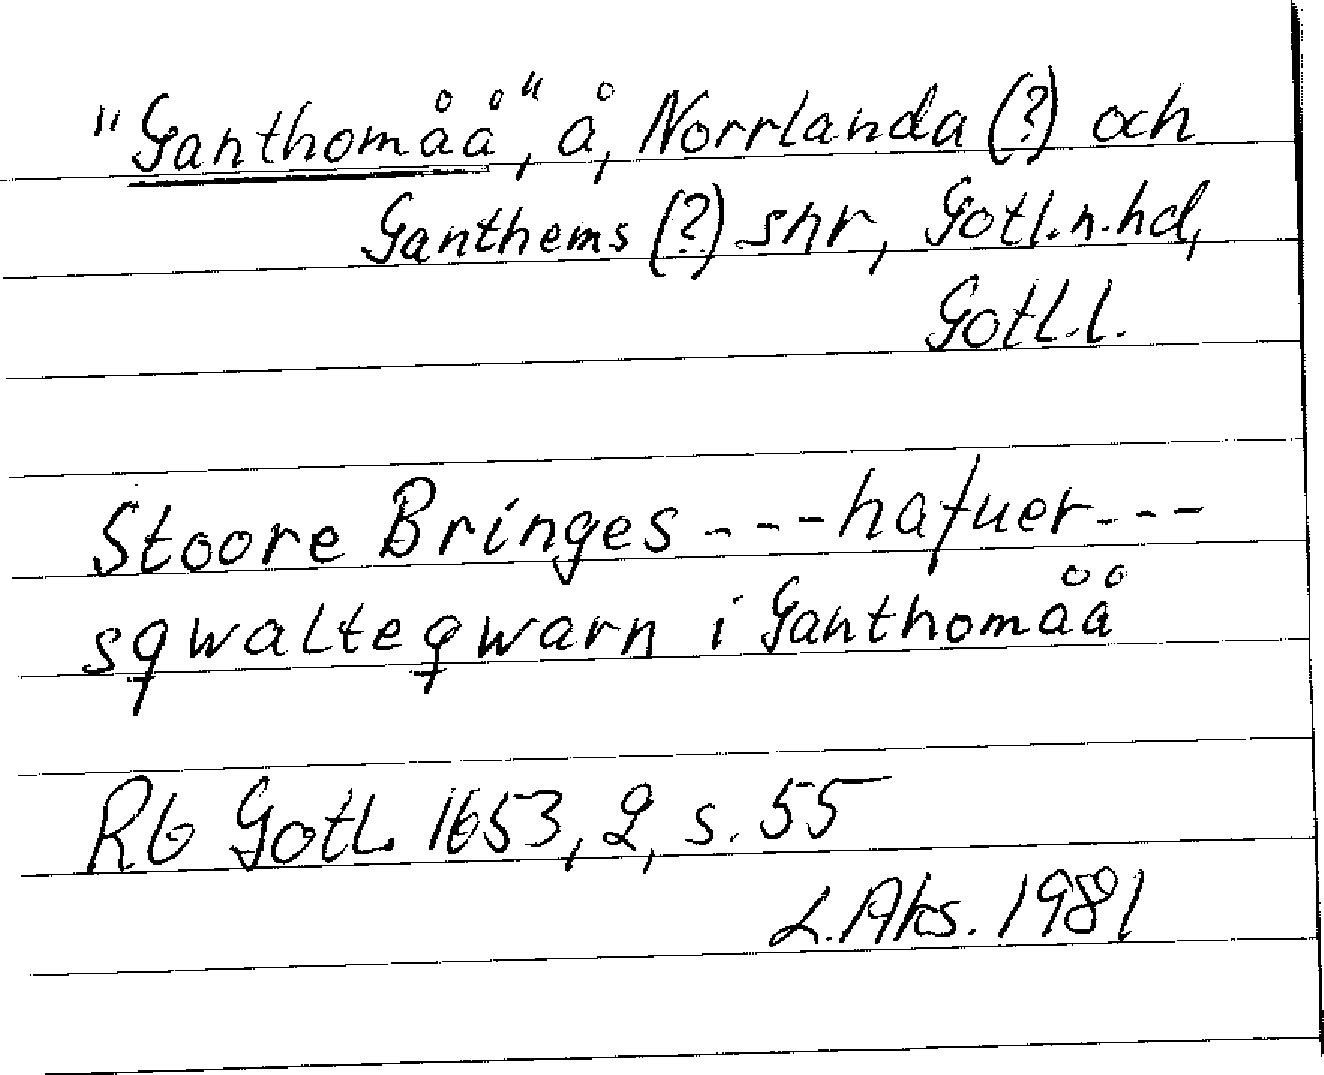 "Ganthomåå", å, Norrlanda (?) och
Ganthems (?) snr, Gotl.n.hd,
Gotl.l.
Stoore Bringes ---hafuer---
sqwalteqwarn i Ganthomåå
Rb Gotl. 1653, 2, s. 55
L.Aks. 1981